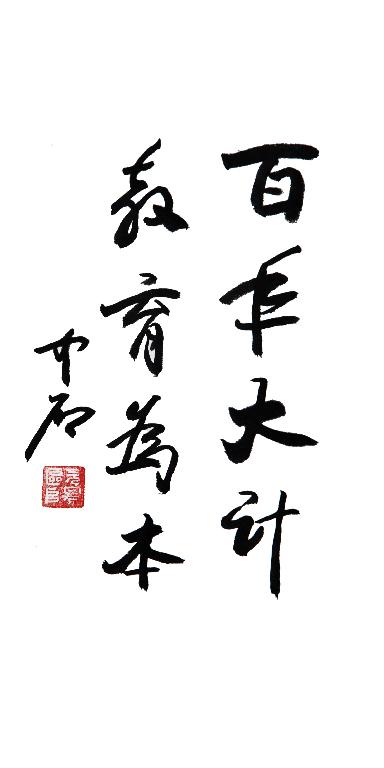 百年大计
教育為本
中石